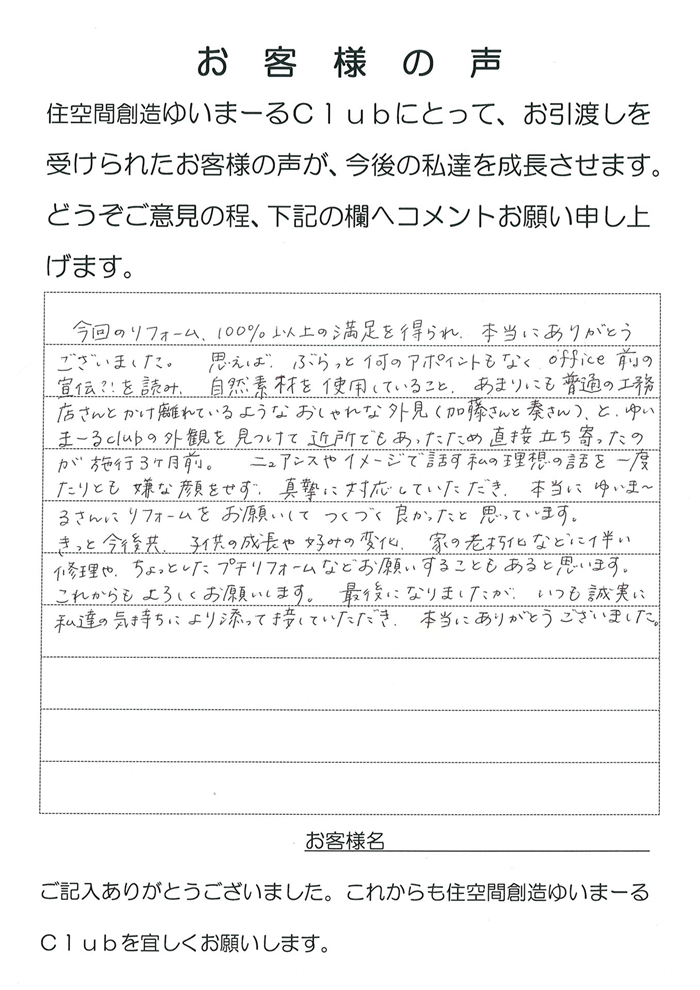 お客様の声
住空間創造ゆいまーるClubにとって、お引渡しを
受けられたお客様の声が、今後の私達を成長させます。
どうぞご意見の程、下記の欄へコメントお願い申し上
げます。
今回のリフォーム、100%以上の満足を得られ、本当にありがとう
ございました。 思えば、ぶらっと何のアポイントもなく、office前の
宣伝?!を読み、自然素材を使用していること、あまりにも普通の工務
店さんとかけ離れているようなおしゃれな外見(加藤さんと奏さん)、と、ゆい
まーるclubの外観を見つけて近所でもあったため直接立ち寄ったの
が施行3ヶ月前。 ニュアンスやイメージで話す私の理想の話を一度
たりとも嫌な顔をせず、真摯に対応していただき、本当にゆいまー
るさんにリフォームをお願いしてつくづく良かったと思っています。
きっと今後共、子供の成長や好みの変化、家の老朽化などに伴い
修理や、ちょっとしたプチリフォームなどお願いすることもあると思います。
これからもよろしくお願いします。 最後になりましたが、いつも誠実に
私達の気持ちにより添って接していただき、本当にありがとうございました。
お客様名
ご記入ありがとうございました。これからも住空間創造ゆいまーる
Clubを宜しくお願いします。